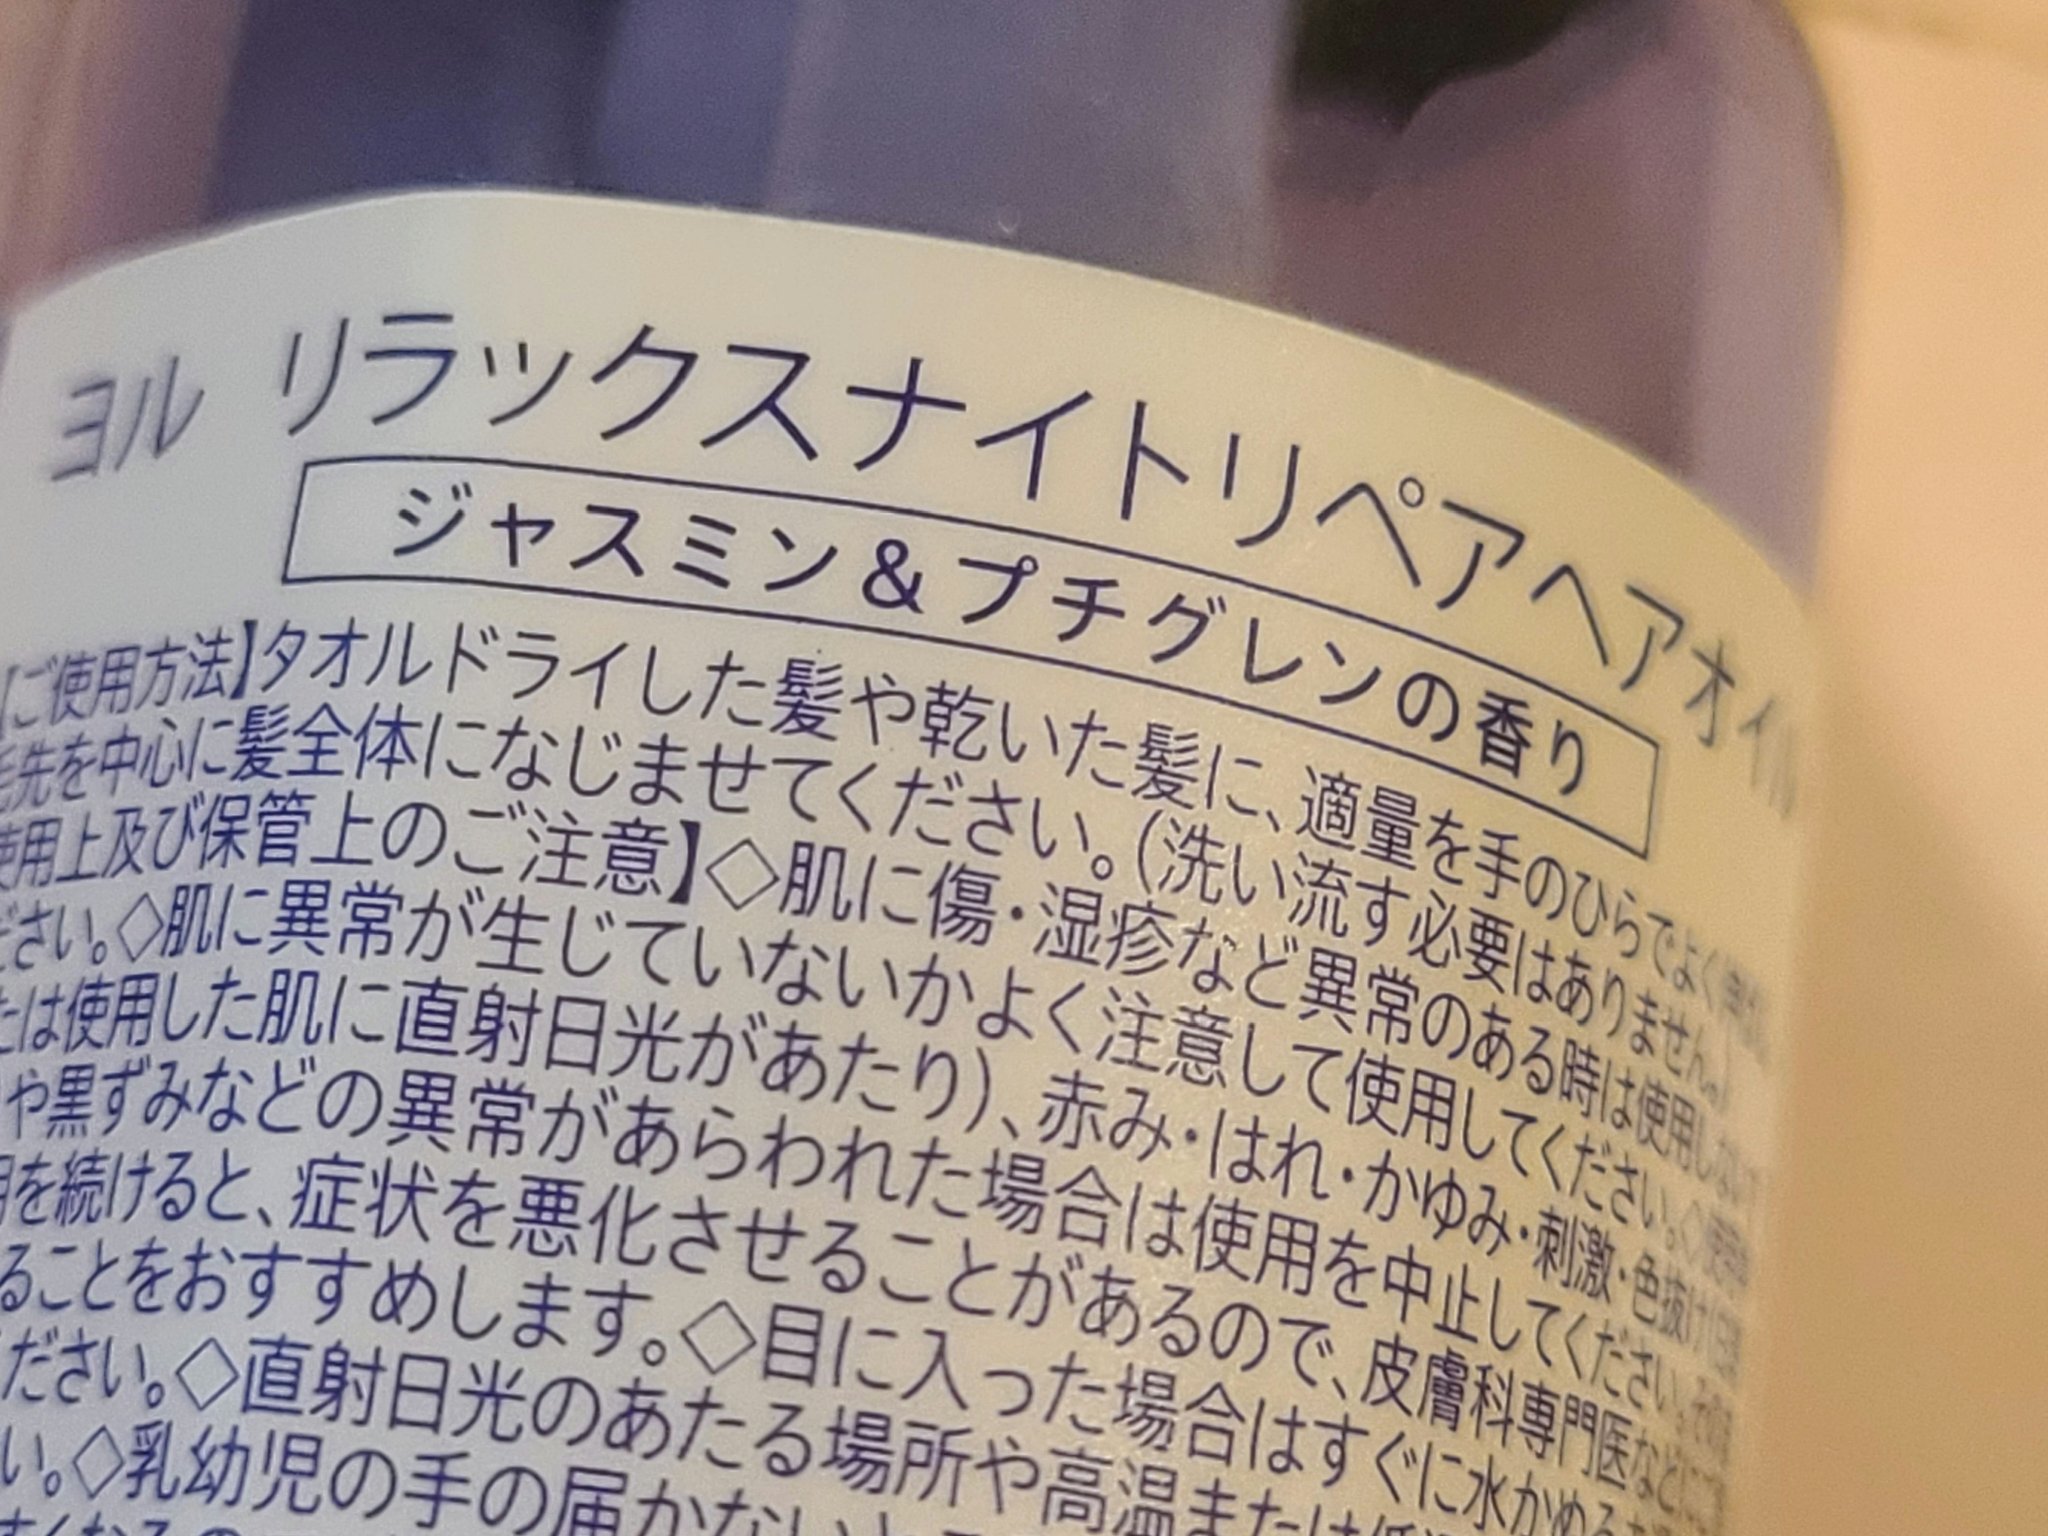 ヨル リラックスナイトリペアヘアオイル
ジャスミン&プチグレンの香り
【ご使用方法】タオルドライした髪や乾いた髪に、適量を手のひらでよく
毛先を中心に髪全体になじませてください。(洗い流す必要はありません。)
使用上及び保管上のご注意】◇肌に傷・湿疹など異常のある時は使用しない
ださい。◇肌に異常が生じていないかよく注意して使用してください。◇使用
たは使用した肌に直射日光があたり)、赤み・はれ・かゆみ・刺激・色抜け(白斑
や黒ずみなどの異常があらわれた場合は使用を中止してください。その
用を続けると、症状を悪化させることがあるので、皮膚科専門医などに
ることをおすすめします。◇目に入った場合はすぐに水かぬる
ください。◇直射日光のあたる場所や高温または低温
い。◇乳幼児の手の届かない